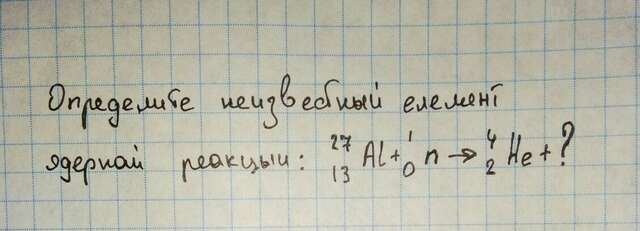 Определите неизвестный елемент
ядерной реакцыи: ²⁷₁₃Al + ¹₀n → ⁴₂He + ?